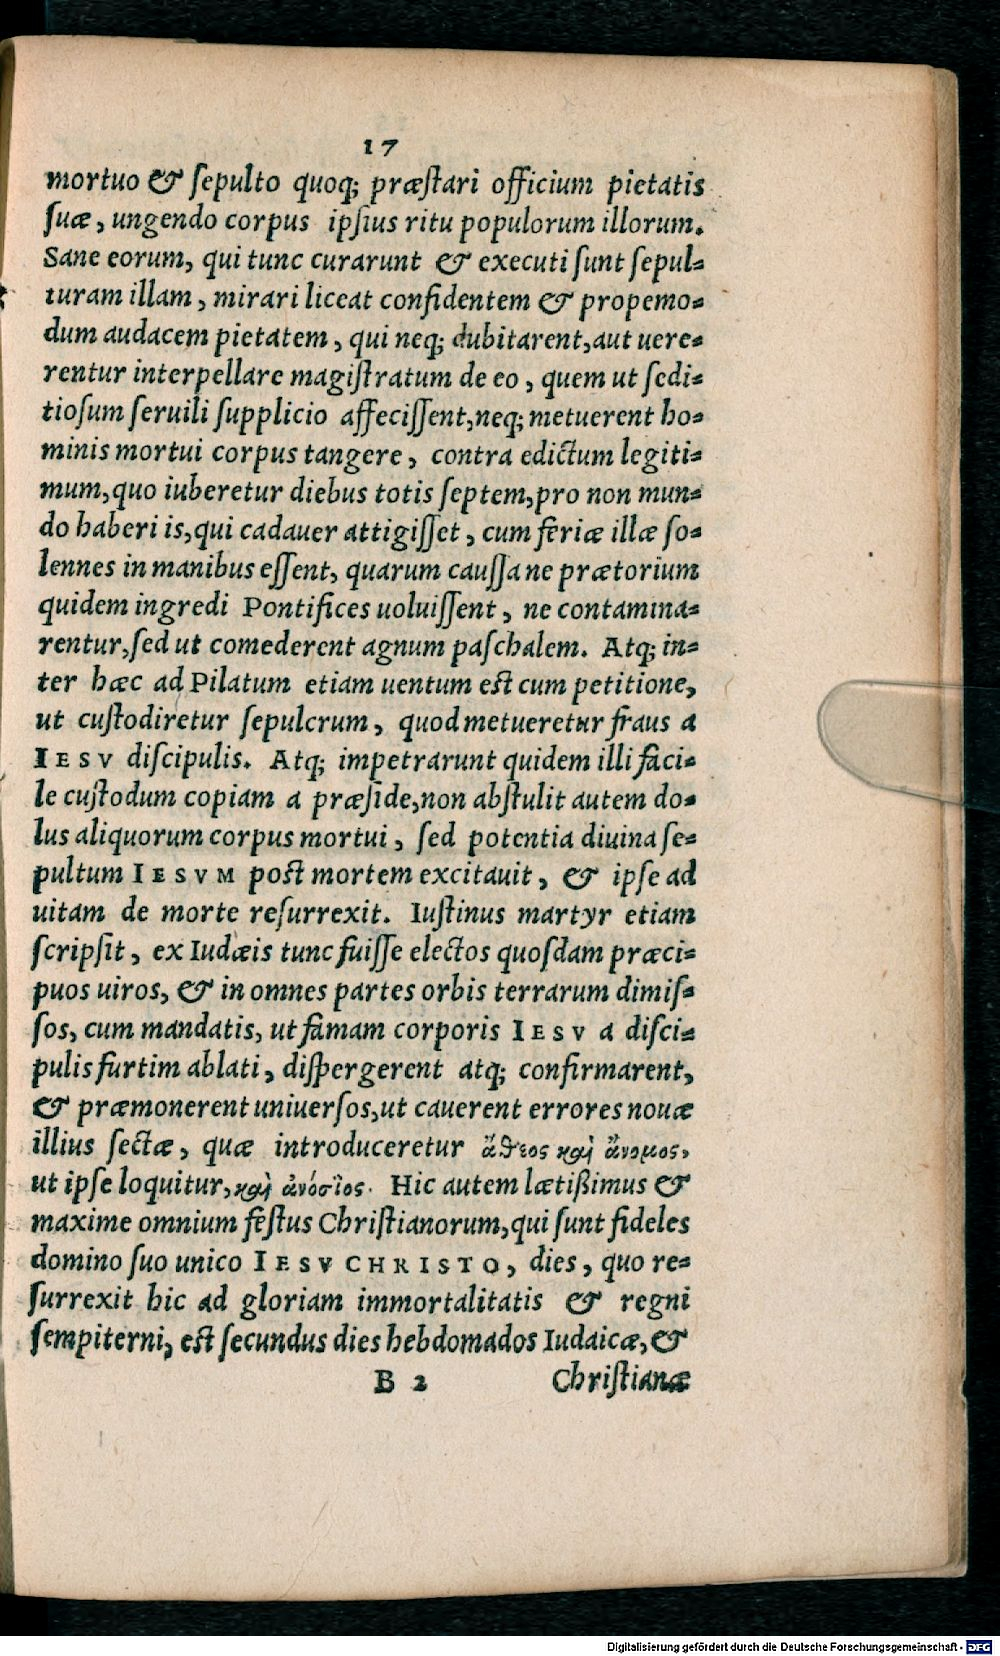 17
mortuo & sepulto quoq; præstari officium pietatis
suæ, ungendo corpus ipsius ritu populorum illorum.
Sane eorum, qui tunc curarunt & executi sunt sepul-
turam illam, mirari liceat confidentem & propemo-
dum audacem pietatem, qui neq; dubitarent, aut uere-
rentur interpellare magistratum de eo, quem ut sedi-
tiosum seruili supplicio affecissent, neq; metuerent ho-
minis mortui corpus tangere, contra edictum legiti-
mum, quo iuberetur diebus totis septem, pro non mun-
do haberi is, qui cadauer attigisset, cum feriæ illæ so-
lennes in manibus essent, quarum caussa ne prætorium
quidem ingredi Pontifices uoluissent, ne contamina-
rentur, sed ut comederent agnum paschalem. Atq; in-
ter hæc ad Pilatum etiam uentum est cum petitione,
ut custodiretur sepulcrum, quod metueretur fraus a
IESV discipulis. Atq; impetrarunt quidem illi faci-
le custodum copiam a præside, non abstulit autem do-
lus aliquorum corpus mortui, sed potentia diuina se-
pultum IESVM post mortem excitauit, & ipse ad
uitam de morte resurrexit. Iustinus martyr etiam
scripsit, ex Iudæis tunc fuisse electos quosdam præci-
puos uiros, & in omnes partes orbis terrarum dimis-
sos, cum mandatis, ut famam corporis IESV a disci-
pulis furtim ablati, dispergerent atq; confirmarent,
& præmonerent uniuersos, ut cauerent errores nouæ
illius sectæ, quæ introduceretur ἄθεος καὶ ἄνομος,
ut ipse loquitur, καὶ ἀνόσιος. Hic autem lætißimus &
maxime omnium festus Christianorum, qui sunt fideles
domino suo unico IESV CHRISTO, dies, quo re-
surrexit hic ad gloriam immortalitatis & regni
sempiterni, est secundus dies hebdomados Iudaicæ, &
B 2 Christianæ
Digitalisierung gefördert durch die Deutsche Forschungsgemeinschaft - DFG